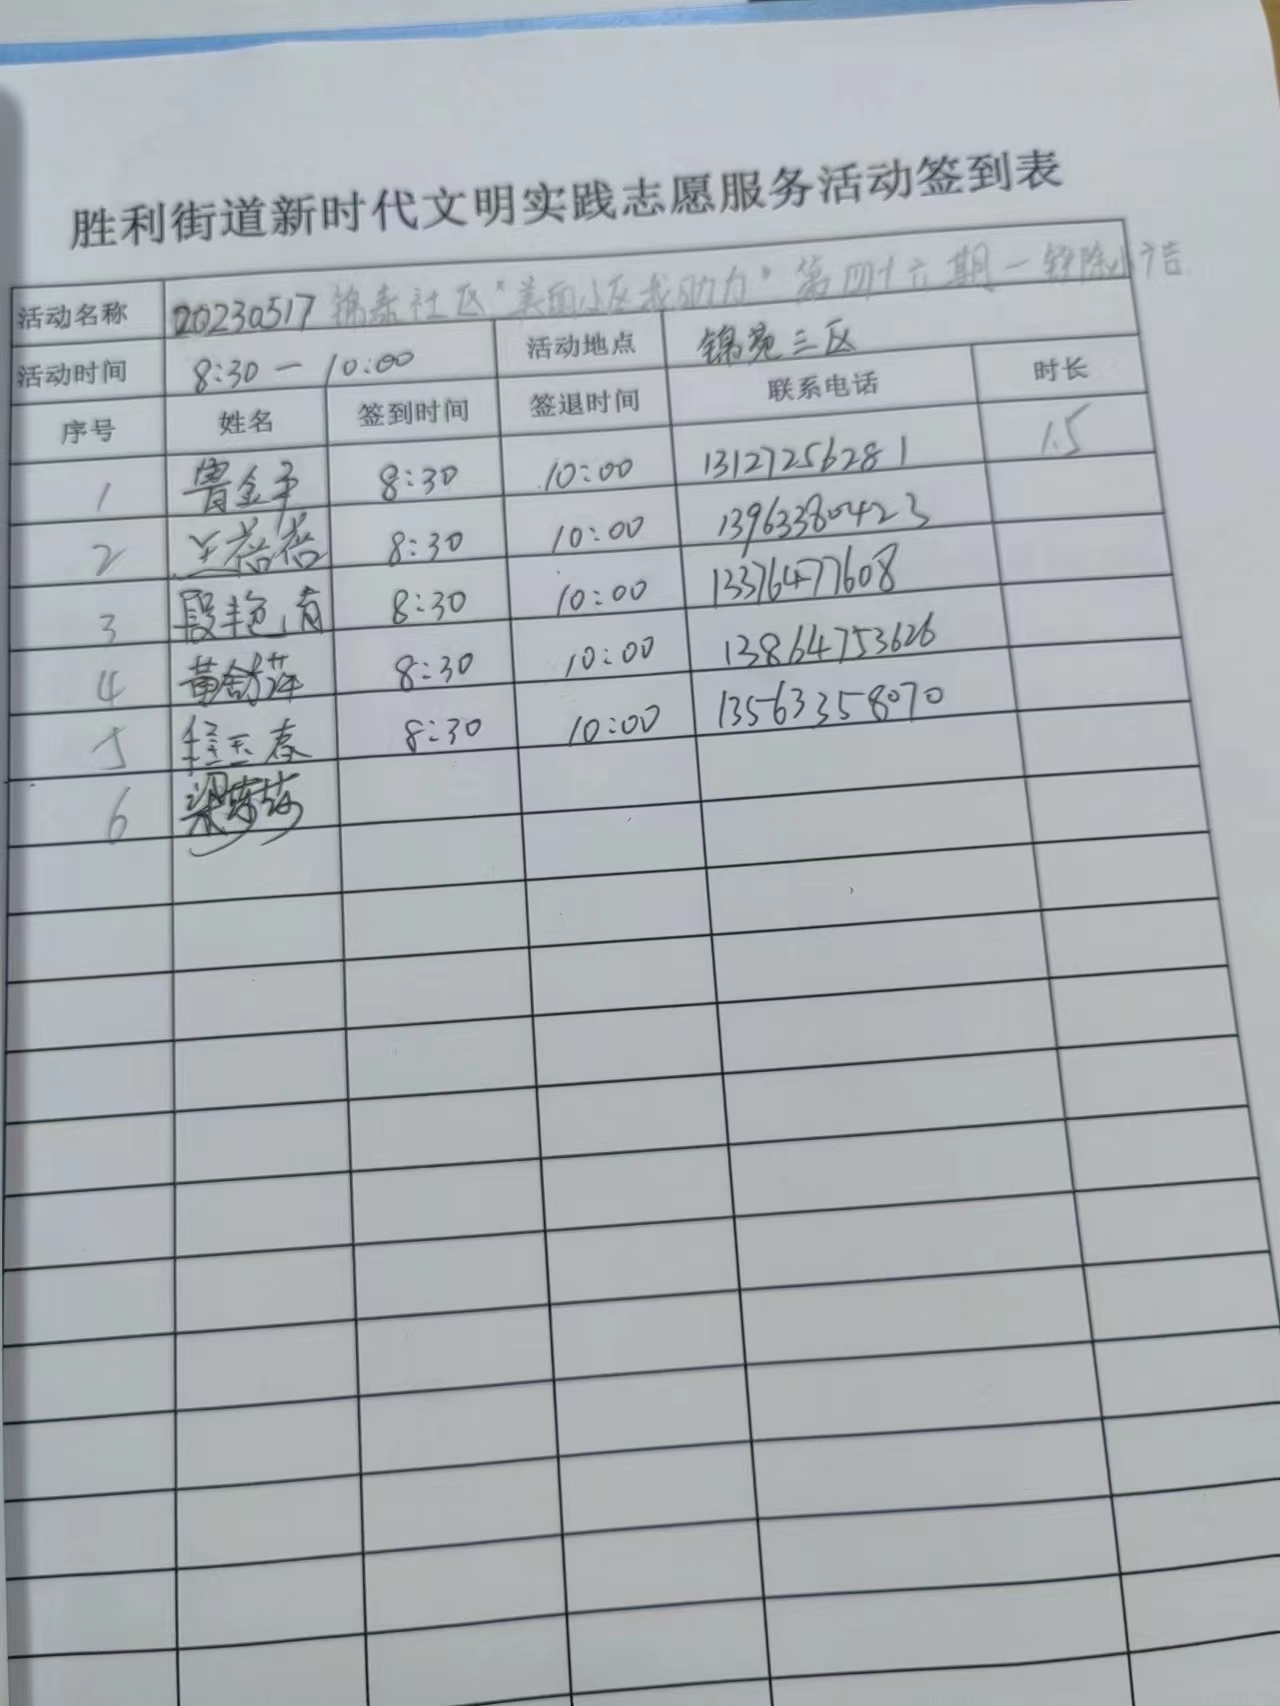 胜利街道新时代文明实践志愿服务活动签到表
活动名称 20230517 锦泰社区"美丽小区我助力"第四十六期一铲除小广告
活动时间 8:30一10:00 活动地点 锦苑三区
序号 姓名 签到时间 签退时间 联系电话 时长
1 曹金平 8:30 10:00 13127256281 1.5
2 王蓓蓓 8:30 10:00 13963380423
3 段艳青 8:30 10:00 13376477608
4 黄舒萍 8:30 10:00 13864753626
5 程玉春 8:30 10:00 13563358070
6